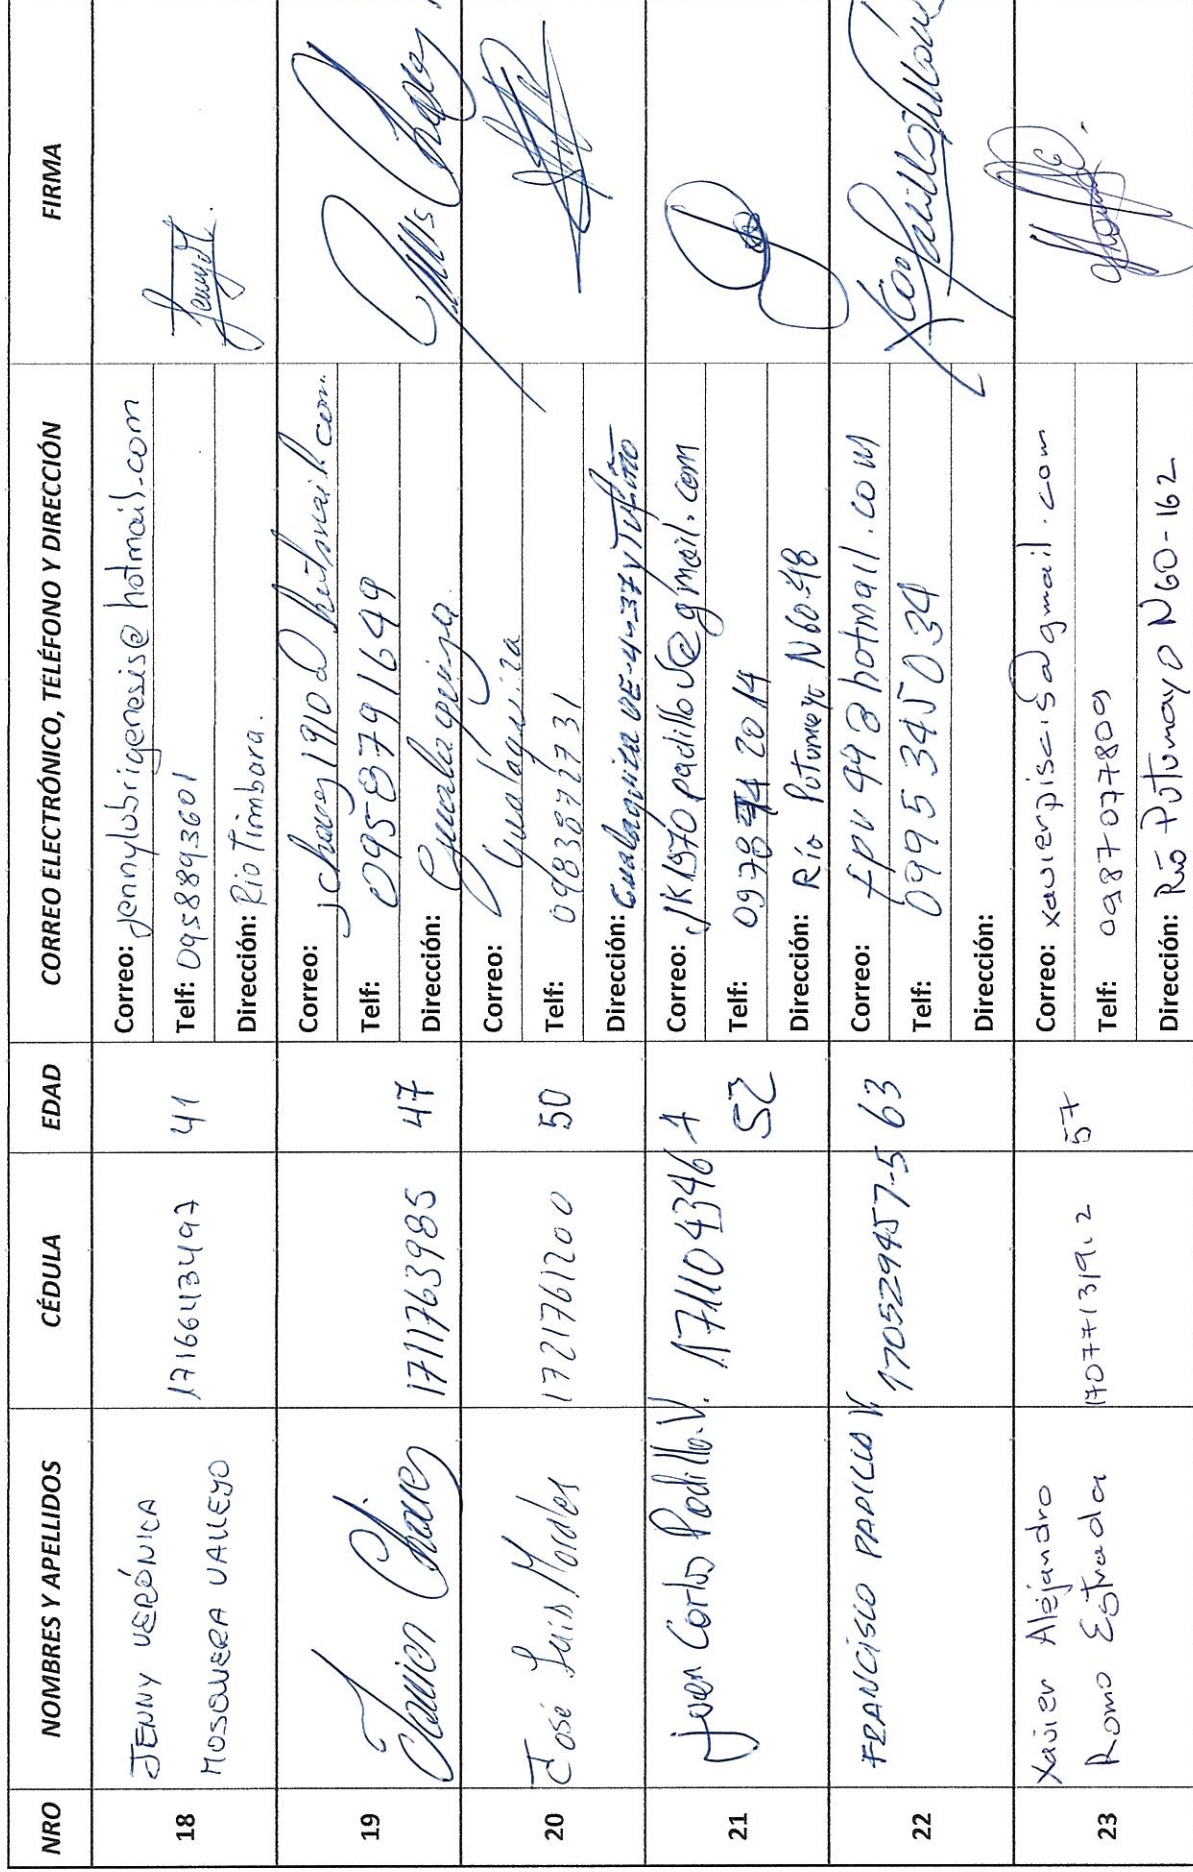 NRO NOMBRES Y APELLIDOS CÉDULA EDAD CORREO ELECTRÓNICO, TELÉFONO Y DIRECCIÓN FIRMA
18
JENNY VERÓNICA
MOSQUERA VALLEJO
1716643497
41
Correo: jennylubrigenesis@hotmail.com
Telf: 0958893601
Dirección: Rio Timbara.
19
Javier Chávez
1711763985
47
Correo: jchavez1910@hotmail.com.
Telf: 0958791649
Dirección: Gualaquiza.
20
José Luis Morales
1721761200
50
Correo: Gualaquiza
Telf: 0983872731
Dirección: Gualaquiza OE-4-37 y Tufiño
21
Juan Carlos Padilla.V.
1711043464
52
Correo: JK1570padilla@gmail.com
Telf: 2014
Dirección: Río Putumayo N60-48
22
FRANCISCO PADILLA V.
170529457-5
63
Correo: fpv448@hotmail.com
Telf: 0995345034
Dirección:
23
Xavier Alejandro
Romo Estrada
170771319.2
57
Correo: xavierpiscis@gmail.com
Telf: 0987077809
Dirección: Río Putumayo N60-162